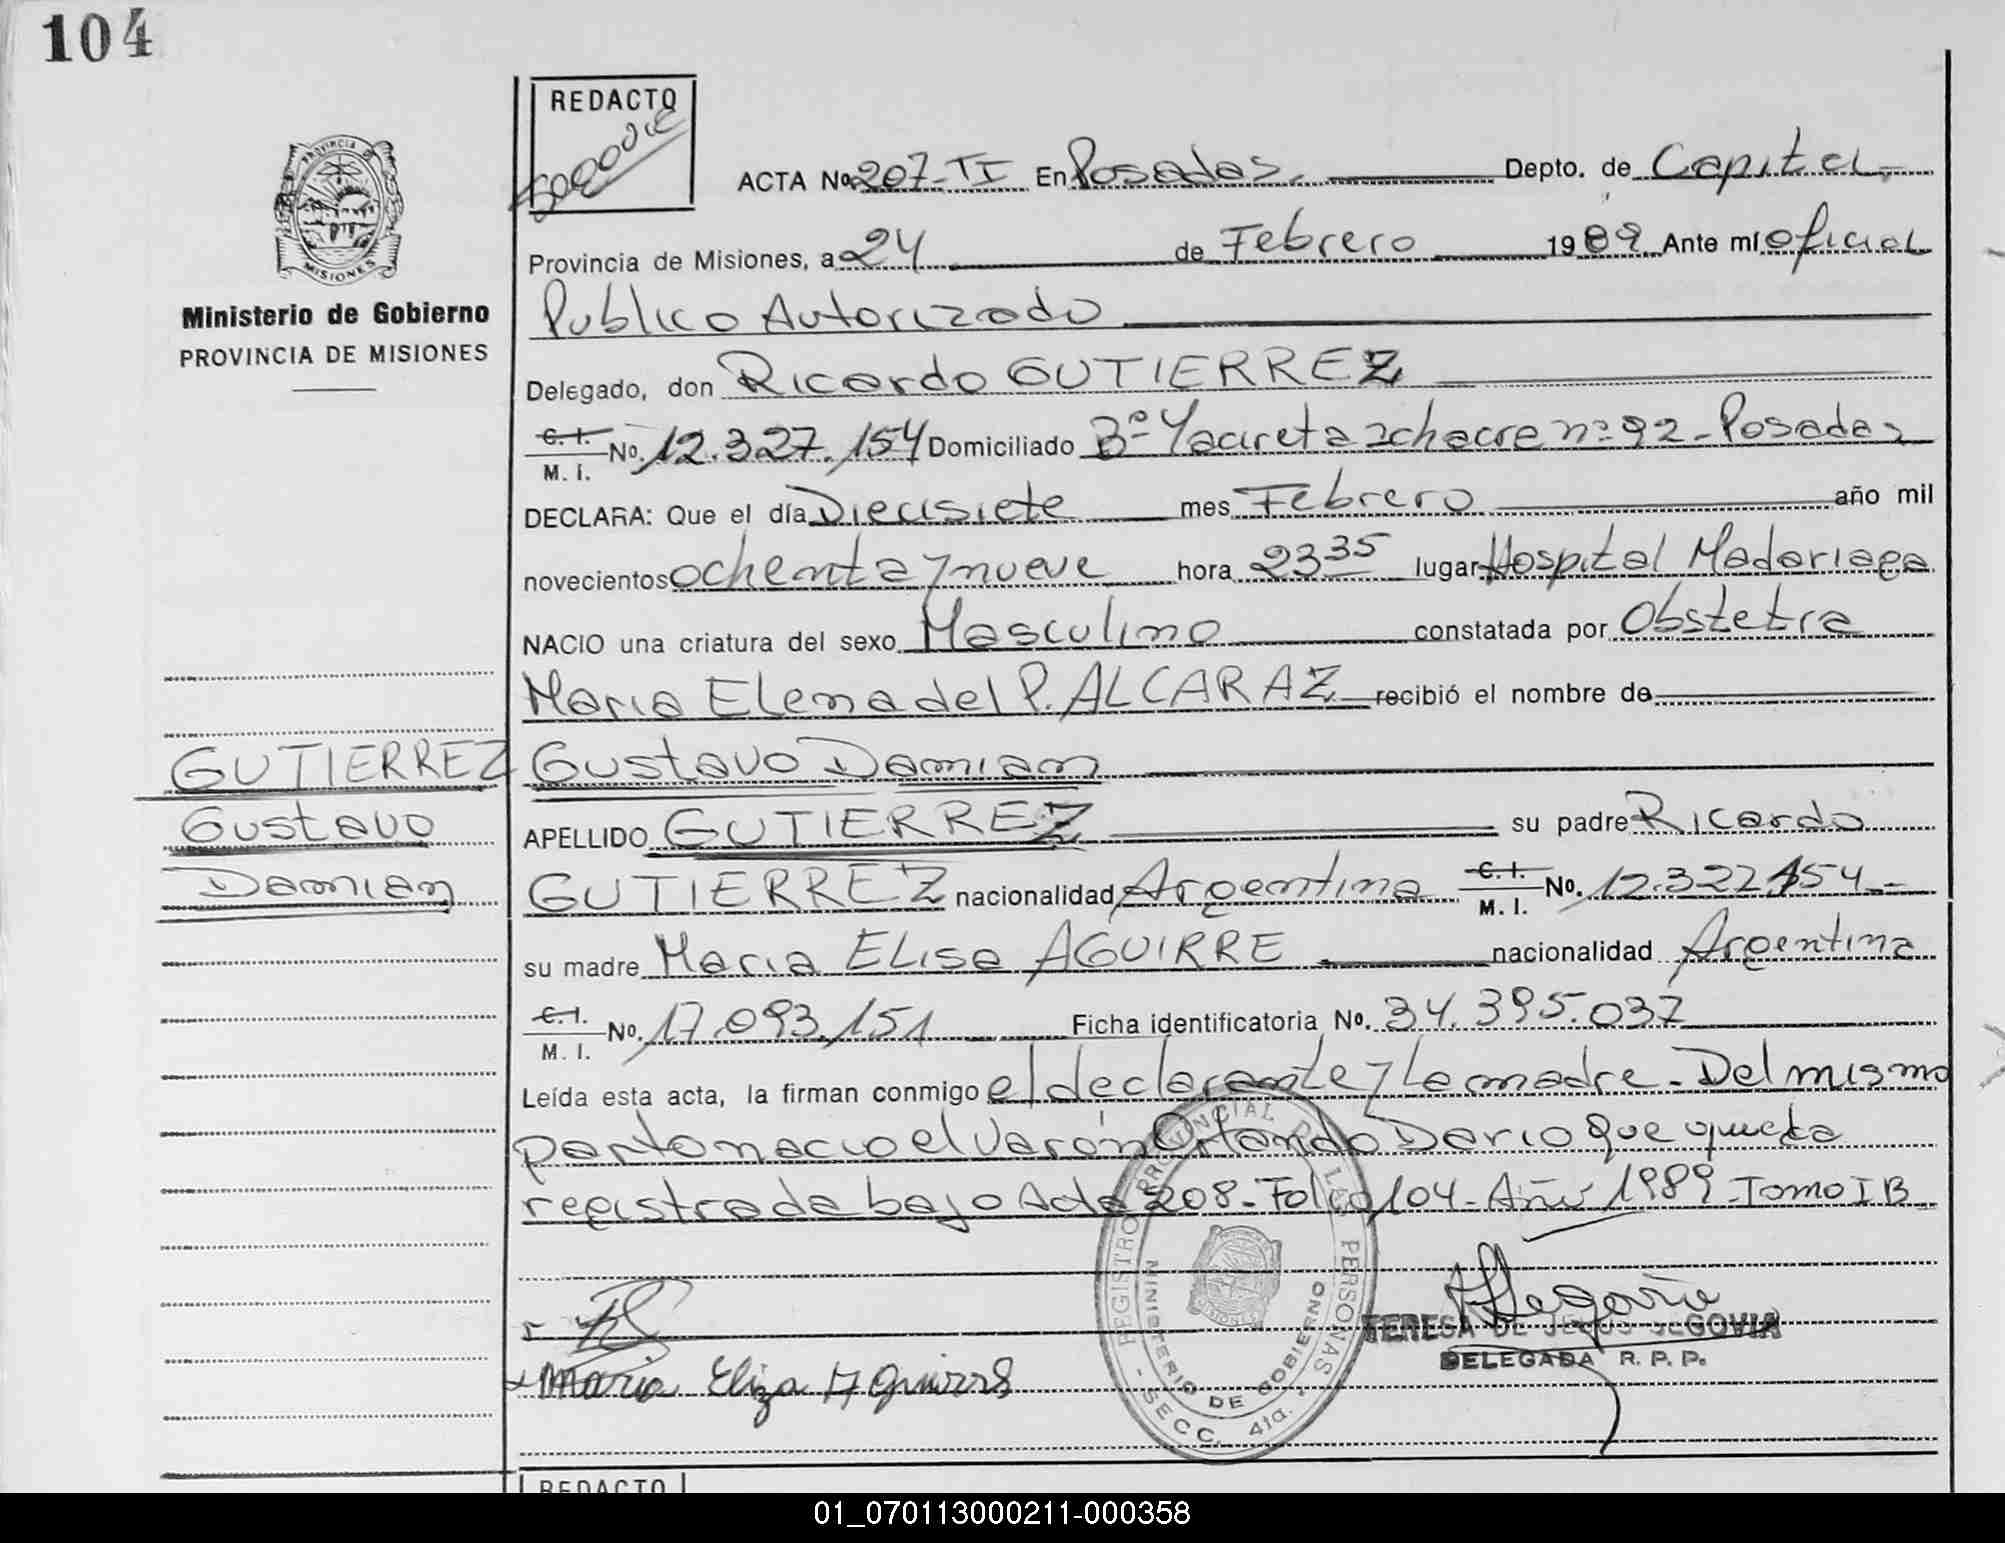 104
REDACTO
PROVINCIA DE
MISIONES
Ministerio de Gobierno
PROVINCIA DE MISIONES
ACTA No. 207-II En Posadas. Depto. de Capital.
Provincia de Misiones, a 24 de Febrero 1989 Ante mí oficial
Publico Autorizado
Delegado, don Ricardo GUTIERREZ
C. I. M. I. No. 12.327.154 Domiciliado Bº Yacireta chacra nº 92 - Posadas
DECLARA: Que el día Diecisiete mes Febrero año mil
novecientos ochenta y nueve hora 23 35 lugar Hospital Madariaga
NACIO una criatura del sexo Masculino constatada por Obstetra
Maria Elena del P. ALCARAZ recibió el nombre de
Gustavo Damian
APELLIDO GUTIERREZ su padre Ricardo
GUTIERREZ nacionalidad Argentina C. I. M. I. No. 12.327.154
su madre Maria Elisa AGUIRRE nacionalidad Argentina
C. I. M. I. No. 17.093.151 Ficha identificatoria No. 34.395.037
Leída esta acta, la firman conmigo el declarante y la madre - Del mismo
parto nacio el Varón Orlando Dario que queda
registrada bajo Acta 208 - Folio 104 - Año 1989 - Tomo I B
GUTIERREZ
Gustavo
Damian
Maria Eliza Aguirre
REGISTRO PROVINCIAL DE LAS PERSONAS
MINISTERIO DE GOBIERNO
- SECC. 4ta. -
TERESA DE JESUS SEGOVIA
DELEGADA R. P. P.
REDACTO
01_070113000211-000358